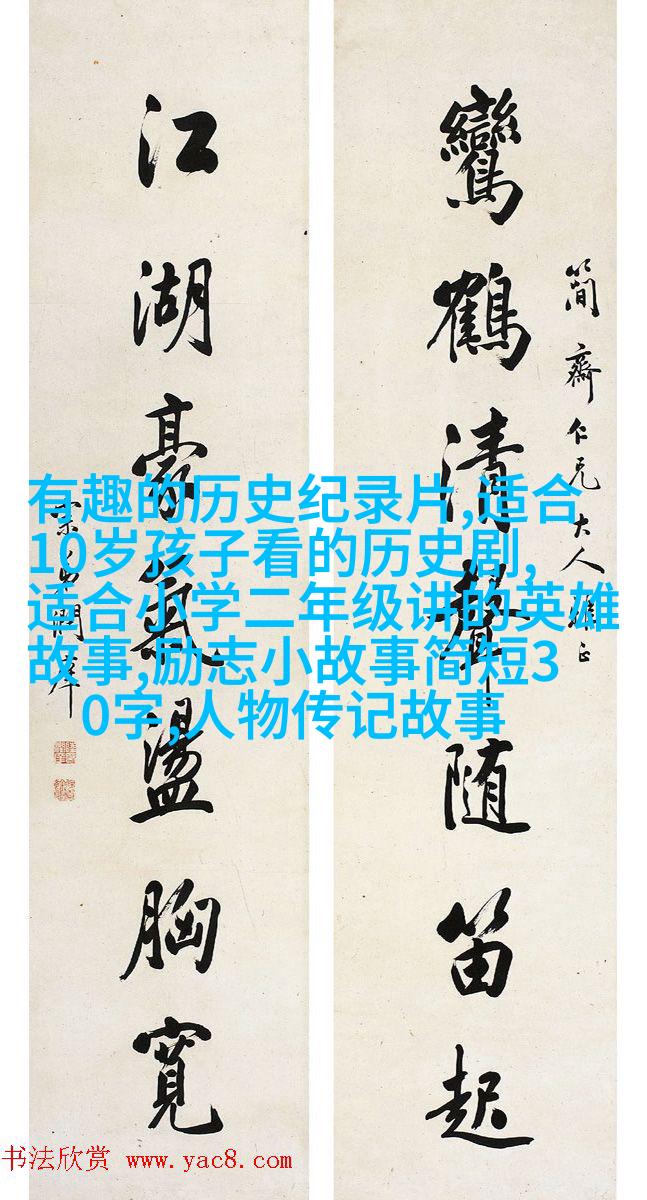 鸞鶴清聲隨笛起
簡齋仁兄大人雅正
江湖豪氣盪胸寬
有趣的历史纪录片,适合
10岁孩子看的历史剧,
适合小学二年级讲的英雄
故事,励志小故事简短3
0字,人物传记故事
书法欣赏 www.yac8.com